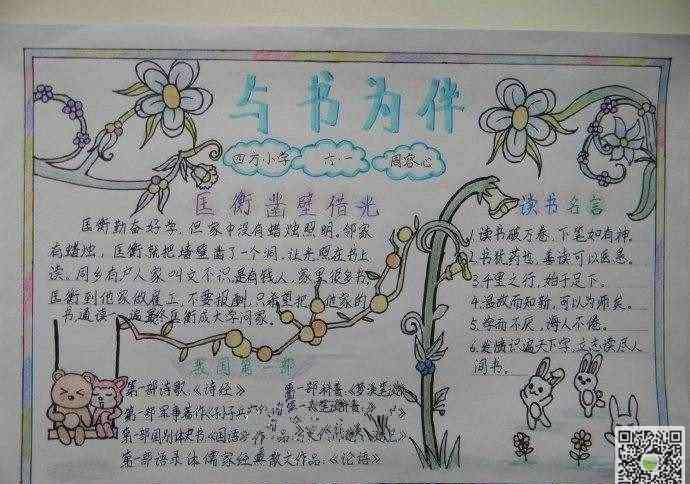 与书为伴
四方小学 六·一 周容心
匡衡凿壁借光
匡衡勤奋好学,但家中没有蜡烛照明,邻家
有蜡烛,匡衡就把墙壁凿了一个洞,让光照在书上
读。同乡有户人家叫文不识,是有钱人,家里很多书,
匡衡到他家做雇工,不要报酬,只希望把他家的
书通读一遍,最终匡衡成大学问家。
读书名言
1.读书破万卷,下笔如有神。
2.书犹药也,善读可以医愚。
3.千里之行,始于足下。
4.温故而知新,可以为师矣。
5.学而不厌,诲人不倦。
6.发愤识遍天下字,立志读尽人
间书。
我国第一部
第一部诗歌:《诗经》
第一部军事著作《孙子兵
第一部国别体史书《国语》
第一部语录体儒家经典散文作品:《论语》
第一部科普:《梦溪笔谈》